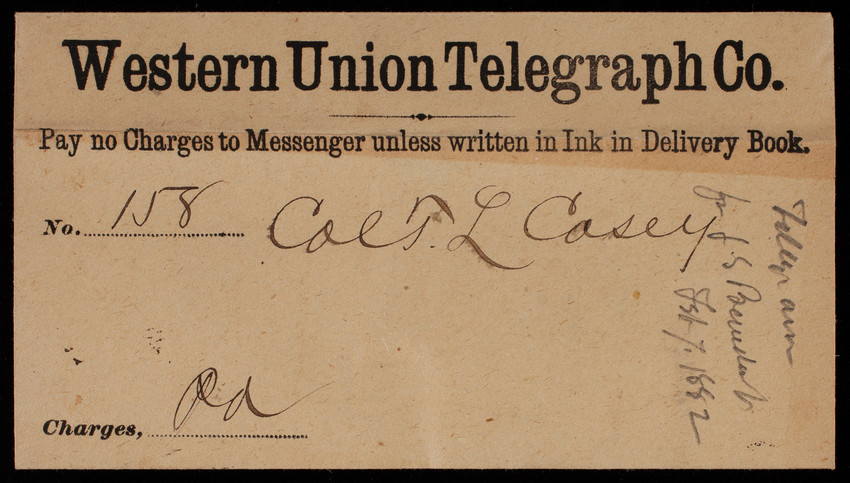 Western Union Telegraph Co.
Pay no Charges to Messenger unless written in Ink in Delivery Book.
No. 158 Col T. L Casey
Charges, Pd
Telegram
fr J S
Feb 7. 1882